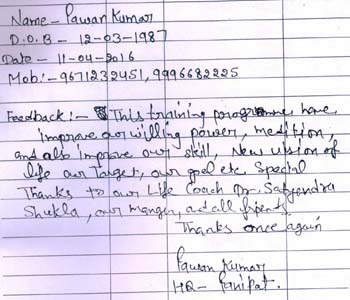 Name - Pawan Kumar
D.O.B - 12-03-1987
Date - 11-04-2016
Mob:- 9671232451, 9996682225
Feedback:- This training programme have
improve our willing power, medition,
and also improve our skill, New vision of
life our Target, our goel etc Special
Thanks to our Life Coach Dr. Satyendra
Shukla, our manger, and all friends.
Thanks once again
Pawan Kumar
HQ - Panipat.